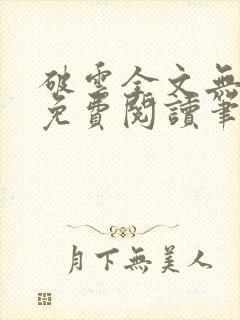 破雲全文無
免費閱讀筆
月下無美人